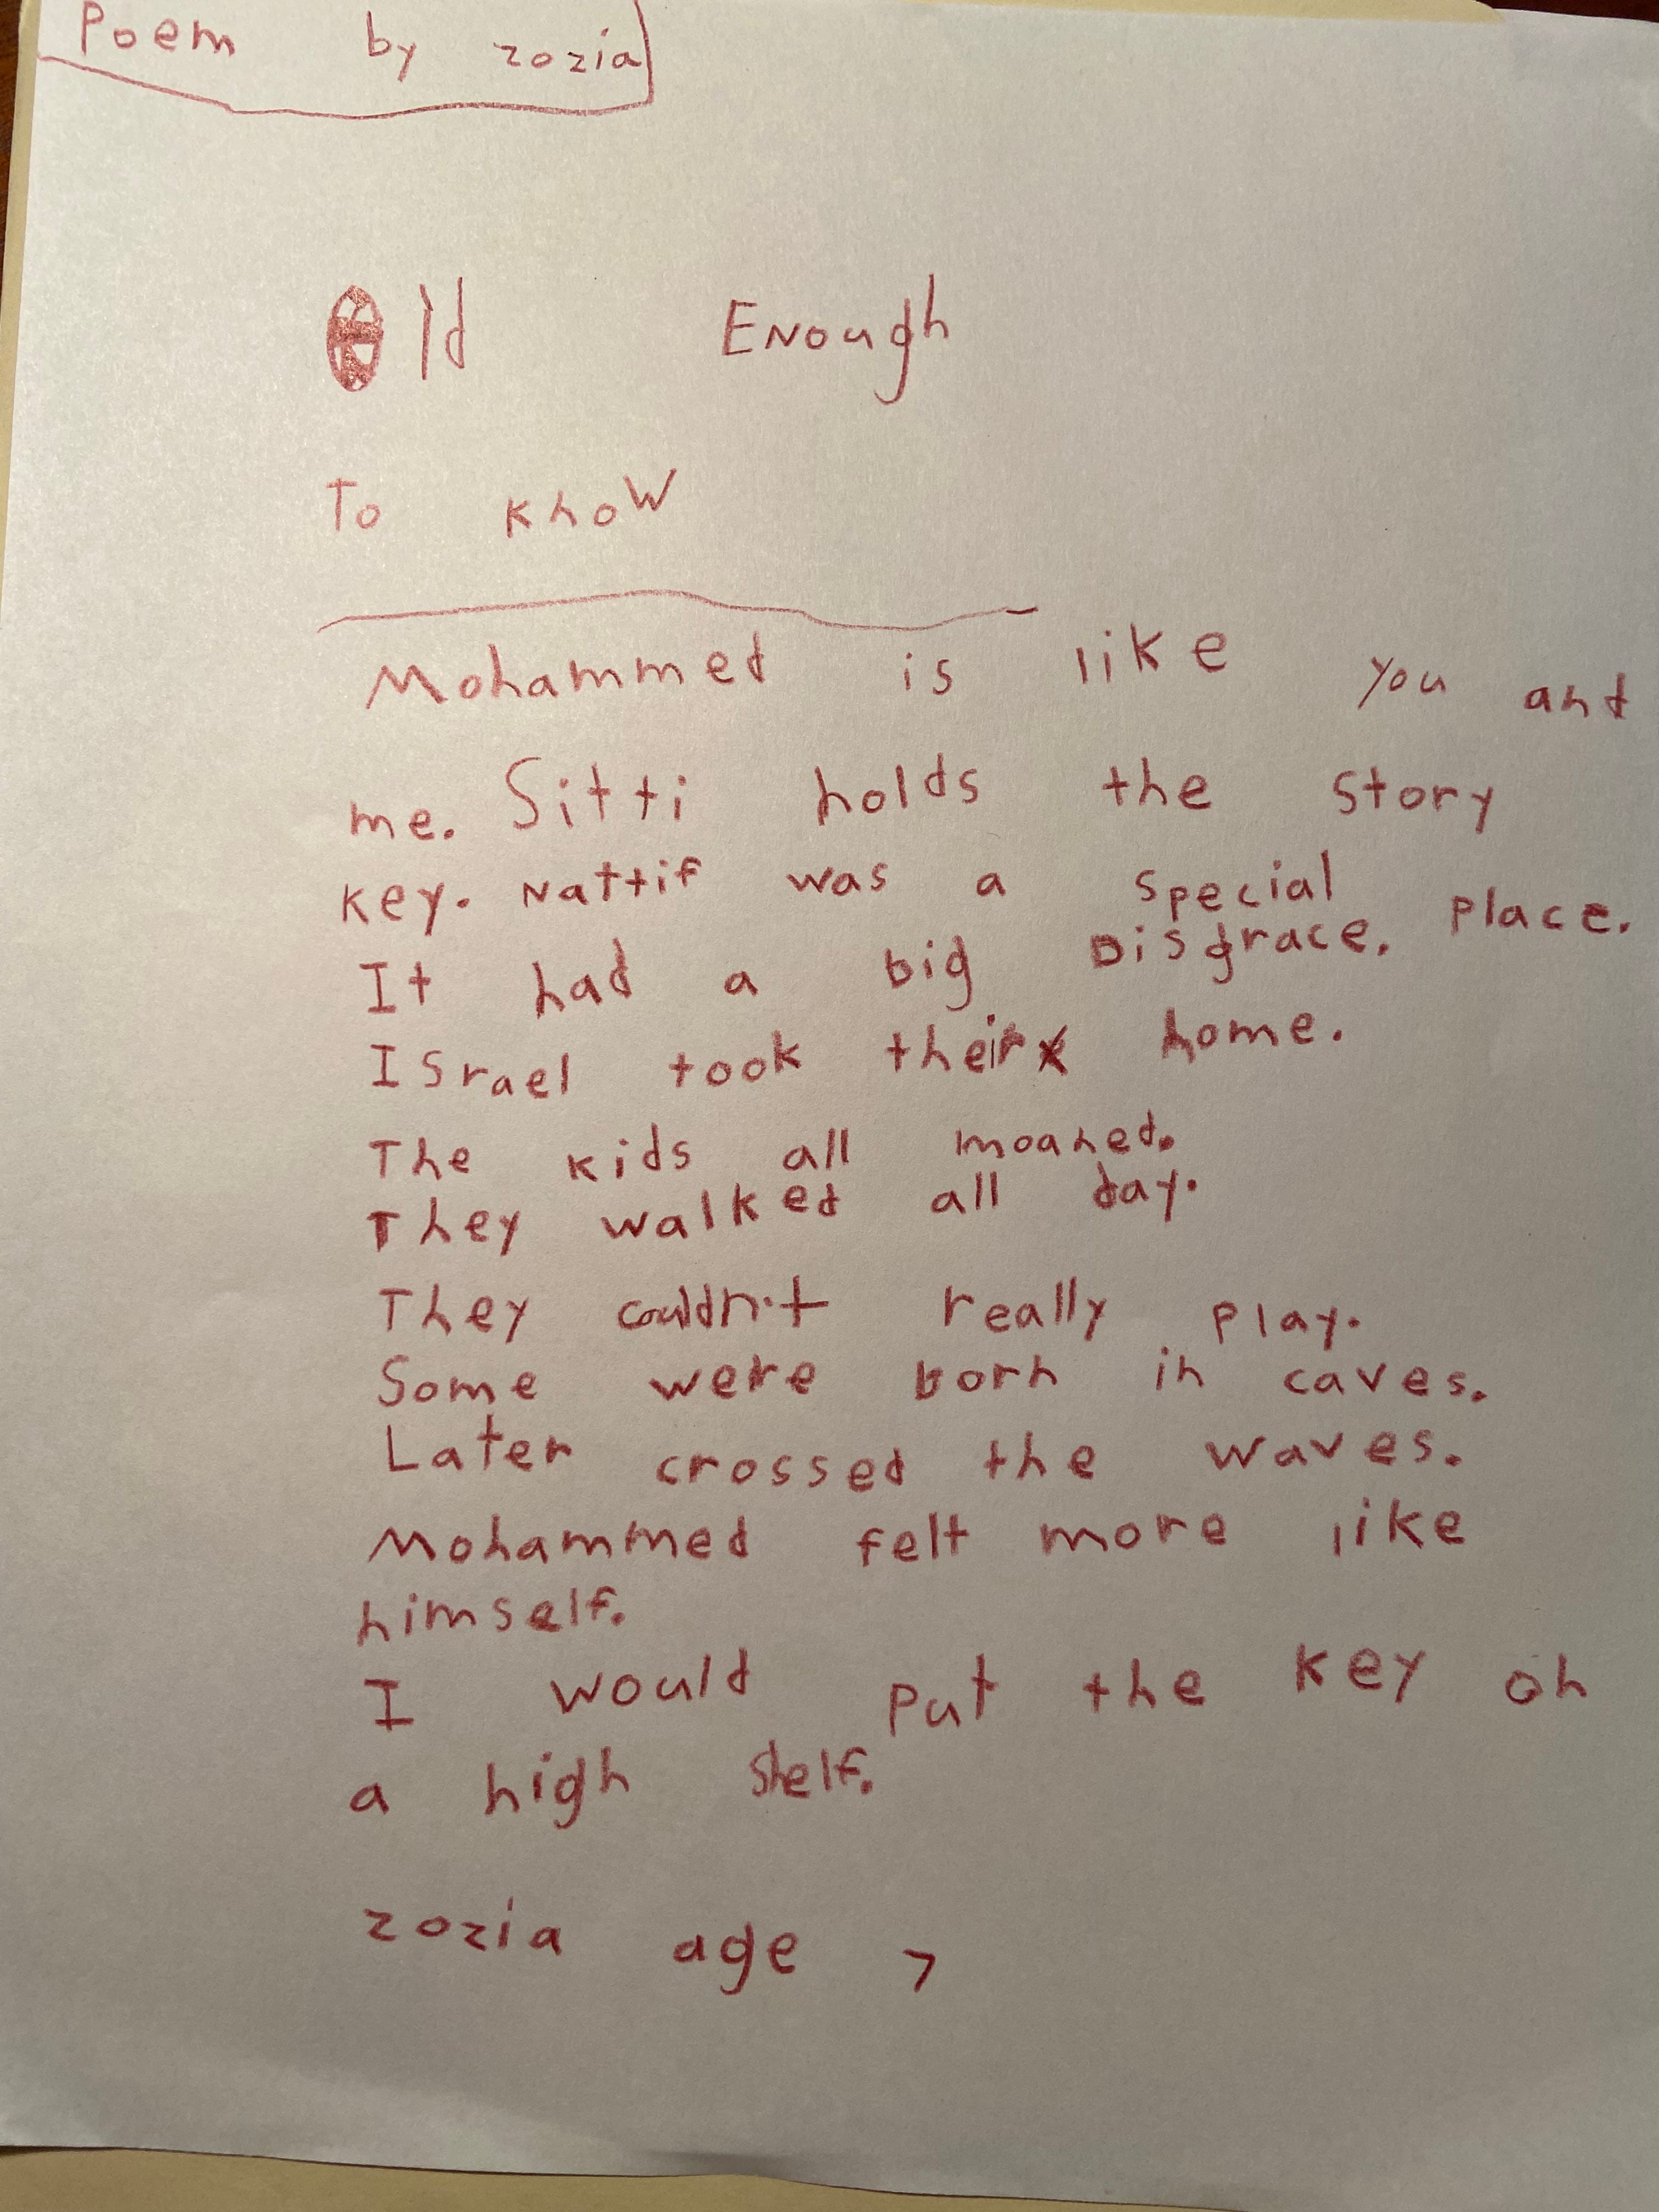 Poem by zozia
Old Enough
To Know
Mohammed is like you and
me. Sitti holds the story
key. Nattif was a special place.
It had a big Disgrace.
Israel took their home.
The kids all moaned.
They walked all day.
They couldn't really play.
Some were born in caves.
Later crossed the waves.
Mohammed felt more like
himself.
I would put the key on
a high shelf.
zozia age 7